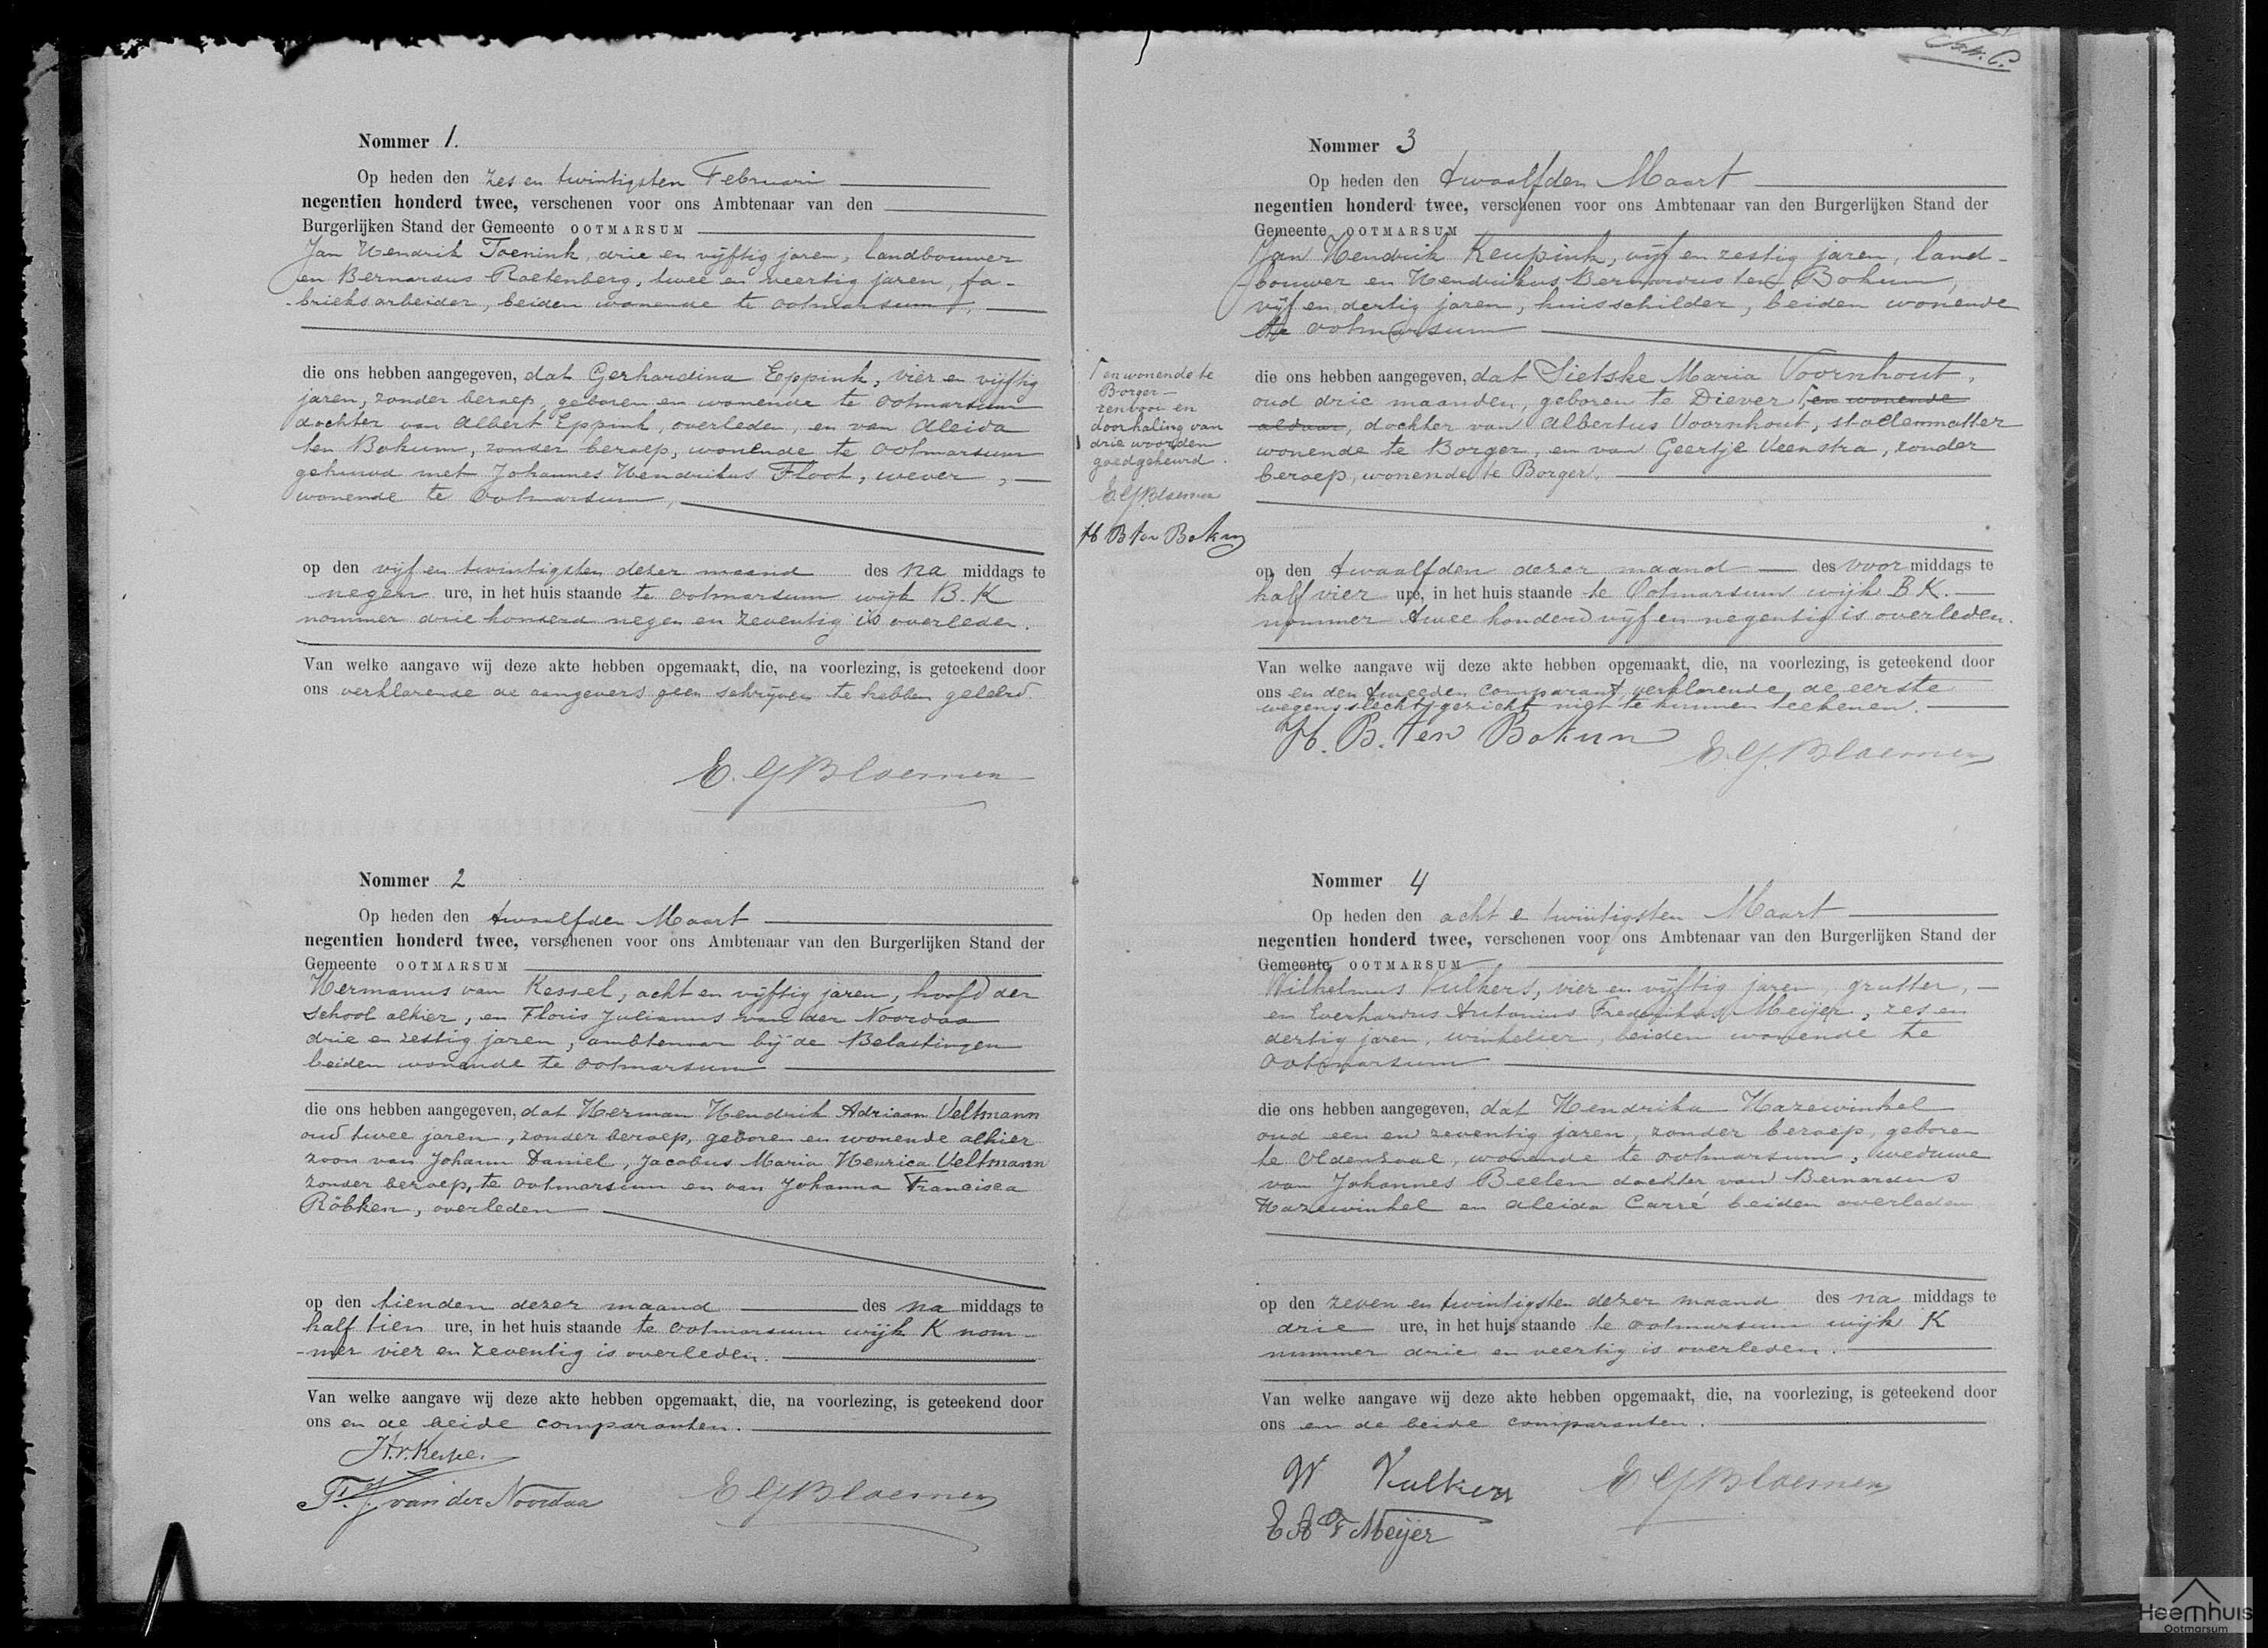 Nommer 1.
Op heden den zes en twintigsten Februari
negentien honderd twee, verschenen voor ons Ambtenaar van den
Burgerlijken Stand der Gemeente OOTMARSUM
Jan Hendrik Toenink, drie en vijftig jaren, landbouwer
en Bernardus Roetenberg, twee en veertig jaren, fa-
-brieksarbeider, beiden wonende te Ootmarsum,
die ons hebben aangegeven, dat Gerhardina Eppink, vier en vijftig
jaren, zonder beroep, geboren en wonende te Ootmarsum
dochter van Albert Eppink, overleden, en van Aleida
ten Bokum, zonder beroep, wonende te Ootmarsum
gehuwd met Johannes Hendrikus Floot, wever,
wonende te Ootmarsum,
op den vijf en twintigsten dezer maand des na middags te
negen ure, in het huis staande te Ootmarsum wijk B. K
nommer drie honderd negen en zeventig is overleden.
Van welke aangave wij deze akte hebben opgemaakt, die, na voorlezing, is geteekend door
ons verklarende de aangevers geen schrijven te hebben geleerd.
E. G. Bloemen
Nommer 2
Op heden den twaalfden Maart
negentien honderd twee, verschenen voor ons Ambtenaar van den Burgerlijken Stand der
Gemeente OOTMARSUM
Hermanus van Kessel, acht en vijftig jaren, hoofd der
school alhier, en Floris Julianus van der Noordaa
drie en zestig jaren, ambtenaar bij de Belastingen
beiden wonende te Ootmarsum
die ons hebben aangegeven, dat Herman Hendrik Adriaan Veltmann
oud twee jaren, zonder beroep, geboren en wonende alhier
zoon van Johann Daniel, Jacobus Maria Henrica Veltmann
zonder beroep, te Ootmarsum en van Johanna Francisca
Röbken, overleden
op den tienden dezer maand des na middags te
half tien ure, in het huis staande te Ootmarsum wijk K nom-
-mer vier en zeventig is overleden.
Van welke aangave wij deze akte hebben opgemaakt, die, na voorlezing, is geteekend door
ons en de beide comparanten.
H. v. Kessel.
F. J. van der Noordaa E G Bloemen
Nommer 3
Op heden den twaalfden Maart
negentien honderd twee, verschenen voor ons Ambtenaar van den Burgerlijken Stand der
Gemeente OOTMARSUM
Jan Hendrik Keupink, vijf en zestig jaren, land-
-bouwer en Hendrikus Bernardus ten Bokum,
vijf en dertig jaren, huisschilder, beiden wonende
te Ootmarsum
die ons hebben aangegeven, dat Sietske Maria Voornhout,
oud drie maanden, geboren te Diever, en wonende
aldaar, dochter van Albertus Voornhout, stoelenmatter
wonende te Borger, en van Geertje Veenstra, zonder
beroep, wonende te Borger.
en wonende te
Borger
renvooi en
doorhaling van
drie woorden
goedgekeurd.
E. G. Bloemen
H B ten Bokum
op den twaalfden dezer maand des voor middags te
half vier ure, in het huis staande te Ootmarsum wijk B K.
nommer twee honderd vijf en negentig is overleden.
Van welke aangave wij deze akte hebben opgemaakt, die, na voorlezing, is geteekend door
ons en den tweeden comparant, verklarende de eerste
wegens slecht gezicht niet te kunnen teekenen.
H. B. ten Bokum E. G. Bloemen
Nommer 4
Op heden den acht en twintigsten Maart
negentien honderd twee, verschenen voor ons Ambtenaar van den Burgerlijken Stand der
Gemeente OOTMARSUM
Wilhelmus Vulkers, vier en vijftig jaren, grutter,
en Everhardus Antonius Frederikus Meijer, zes en
dertig jaren, winkelier, beiden wonende te
Ootmarsum
die ons hebben aangegeven, dat Hendrika Hazewinkel
oud een en zeventig jaren, zonder beroep, geboren
te Oldenzaal, wonende te Ootmarsum, weduwe
van Johannes Beelen dochter van Bernardus
Hazewinkel en Aleida Carré beiden overleden
op den zeven en twintigsten dezer maand des na middags te
drie ure, in het huis staande te Ootmarsum wijk K
nummer drie en veertig is overleden.
Van welke aangave wij deze akte hebben opgemaakt, die, na voorlezing, is geteekend door
ons en de beide comparanten.
W Vulkers E G Bloemen
E A F Meijer
Heemhuis
Ootmarsum